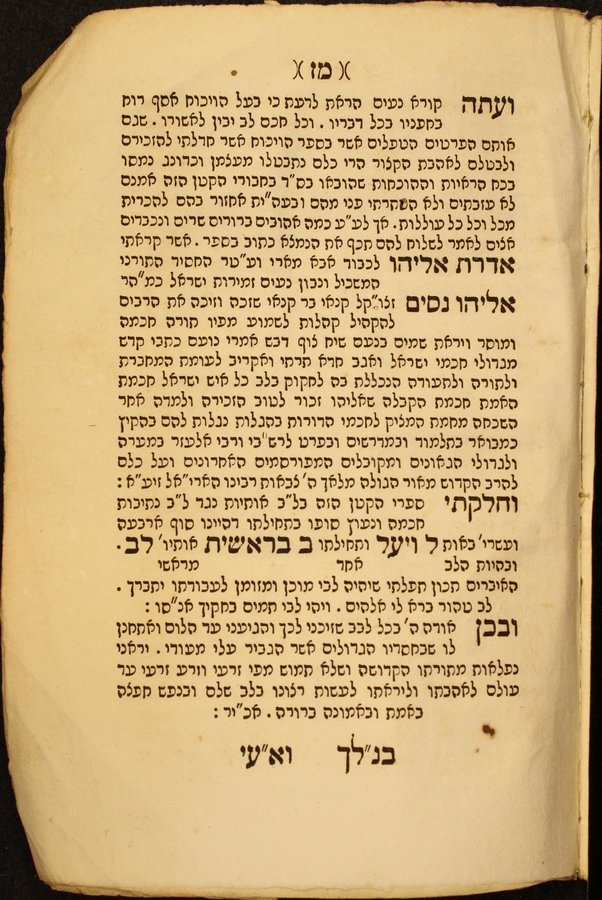 )( מז )(
ועתה קורא נעים הראת לדעת כי בעל הויכוח אסף רוח
בחפניו בכל דבריו . וכל חכם לב יבין לאשורו . שגם
אותם הפרטים הטפלים אשר בספר הויכוח אשר חדלתי להזכירם
ולבטלם לאהבת הקצור הרי כלם נתבטלו מעצמן וכדונג נמסו
בכח הראיות וההוכחות שהובאו בס"ד בחבורי הקטן הזה אמנם
לא עזבתים ולא הסתרתי פני מהם ובעה"ית אחזור בהם להכרית
מכל וכל כל עוללות. אך לע"ע כמה אהובים ברורים שרים ונכבדים
אצים לאמר לשלוח להם תכף את הנמצא כתוב בספר . אשר קראתי
אדרת אליהו לכבוד אבא מארי וע"טר החסיד התורני
המשכיל ונבון נעים זמירות ישראל כמ"הר
אליהו נסים זצו"קל קנאי בר קנאי שזכה וזיכה את הרבים
להקהיל קהלות לשמוע מפיו תורה חכמה
ומוסר ויראת שמים בנעם שיח צוף דבש אמרי נועם כתבי קדש
מגדולי חכמי ישראל ואגב חרא תרתי ואקריב לעומת המחברת
ולתורה ולתעודה הנכללת בה לחקוק בלב כל איש ישראל חכמת
האמת חכמת הקבלה שאליהו זכור לטוב הזכירה ולמדה אחר
השכחה מחמת המציק לחכמי הדורות בהגלות נגלות להם בהקיץ
כמבואר בתלמוד ובמדרשים ובפרט לרש"בי ורבי אלעזר במערה
ולגדולי הגאונים ומקובלים המפורסמים האחרונים ועל כלם
להרב הקדוש מאור הגולה מלאך ה' צבאות רבינו האר"י אל זיע"א :
וחלקתי ספרי הקטן הזה בל"ב אותיות נגד ל"ב נתיבות
חכמה ונעוץ סופו בתחילתו דהיינו סוף ארבעה
ועשרי' באות ל ויעל ותחילתו ב בראשית אותיו' לב .
ובהיות הלב אחר מראשי
האיברים תכון תפלתי שיהיה לבי מוכן ומזומן לעבודתו יתברך .
לב טהור ברא לי אלהים . ויהי לבי תמים בחקיך אנ"סו :
ובכן אודה ה' בכל לבב שזיכני לכך והגיעני עד הלום ואתחנן
לו שבחסדיו הגדולים אשר הגביר עלי מעודי . יראני
נפלאות מתורתו הקדושה ושלא תמוש מפי זרעי וזרע זרעי עד
עולם לאהבתו וליראתו לעשות רצונו בלב שלם ובנפש חפצה
באמת ובאמונה ברורה . אכ"יר :
בנ"לך וא"עי